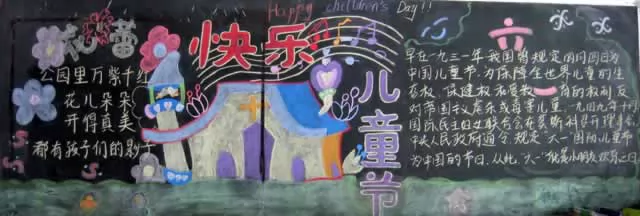 Happy children's Day!!
花蕾
公园里万紫千红
花儿朵朵
开得真美
都有孩子们的影子
快乐
儿童节
六一
早在一九三一年,我国曾规定四月四日为
中国儿童节,为保障全世界儿童的生
存权、保健权和受教育的权利反
对帝国主义虐杀或毒害儿童,一九四九年十
国际民主妇女联合会在莫斯科召开理事会
中央人民政府通令规定"六一"国际儿童节
为中国的节日,从此,"六一"